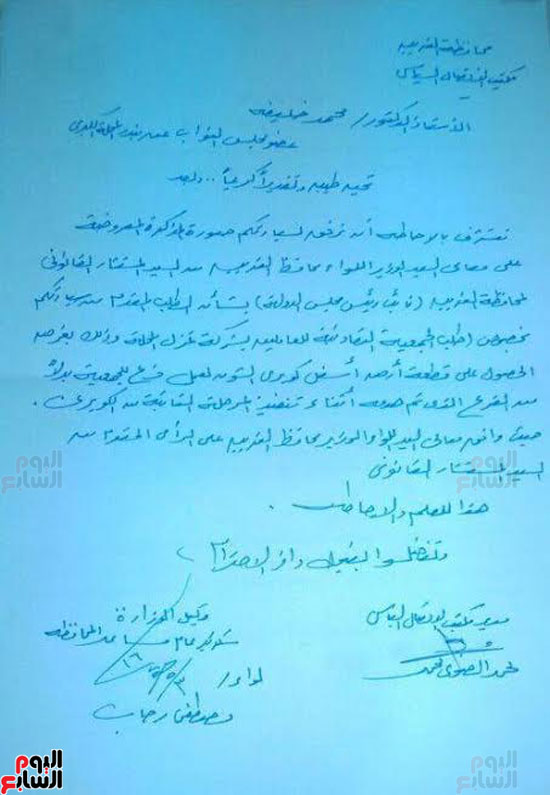 محافظة الغربية
مكتب الاتصال السياسى
الأستاذ الدكتور / محمد خليفة
عضو مجلس النواب عن بندر المحلة الكبرى
تحية طيبة وتقديراً كريماً .. وبعد
نتشرف بالإحاطة أن نرفق لسيادتكم صورة المذكرة المعروضة
على معالى السيد الوزير اللواء محافظ الغربية من السيد المستشار القانونى
لمحافظة الغربية (نائب رئيس مجلس الدولة) بشأن الطلب المقدم من سيادتكم
بخصوص (طلب الجمعية التعاونية للعاملين بشركة غزل المحلة وذلك بغرض
الحصول على قطعة أرض أسفل كوبرى الشون لعمل فرع للجمعية بدلاً
من الفرع الذى تم هدمه أثناء تنفيذ المرحلة الثانية من الكوبرى .
حيث وافق معالى السيد اللواء الوزير محافظ الغربية على الرأى المقدم من
السيد المستشار القانونى
هذا للعلم والإحاطة .
وتفضلوا بقبول وافر الاحترام
مدير مكتب الاتصال السياسى
محمد
وكيل الوزارة
سكرتير عام مساعد المحافظة
لواء /
مصطفى رجاب
اليوم السابع
اليوم السابع
اليوم السابع
اليوم السابع